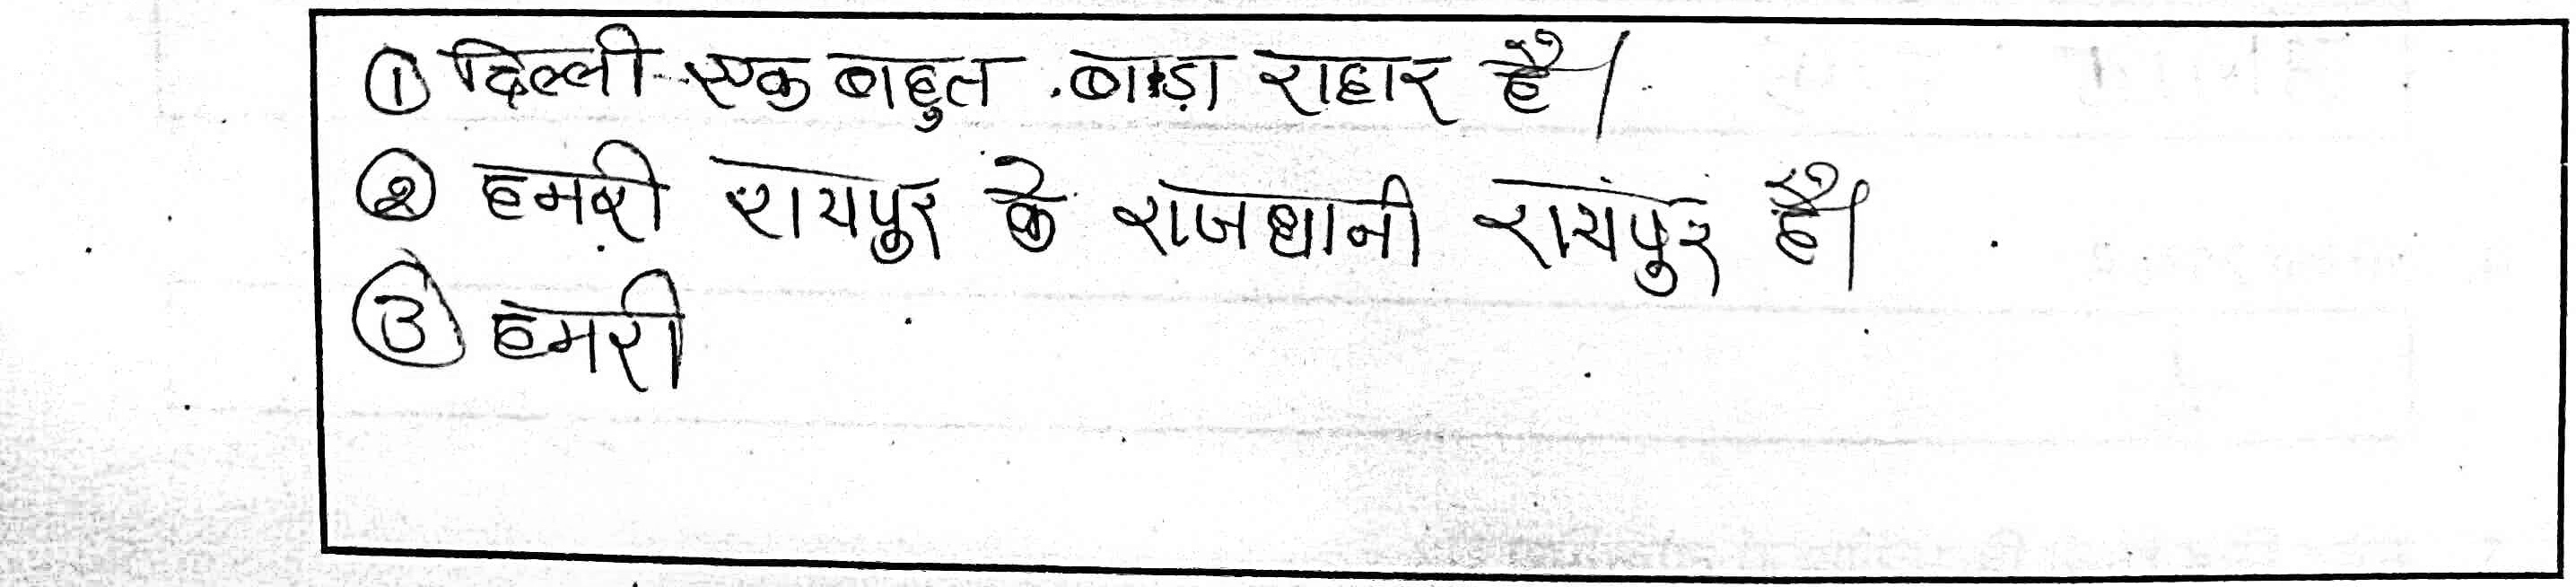 ① दिल्ली एक बाहुत बाड़ा राहार है।
② हमरी रायपुर के राजधानी रायपुर है।
③ हमरी